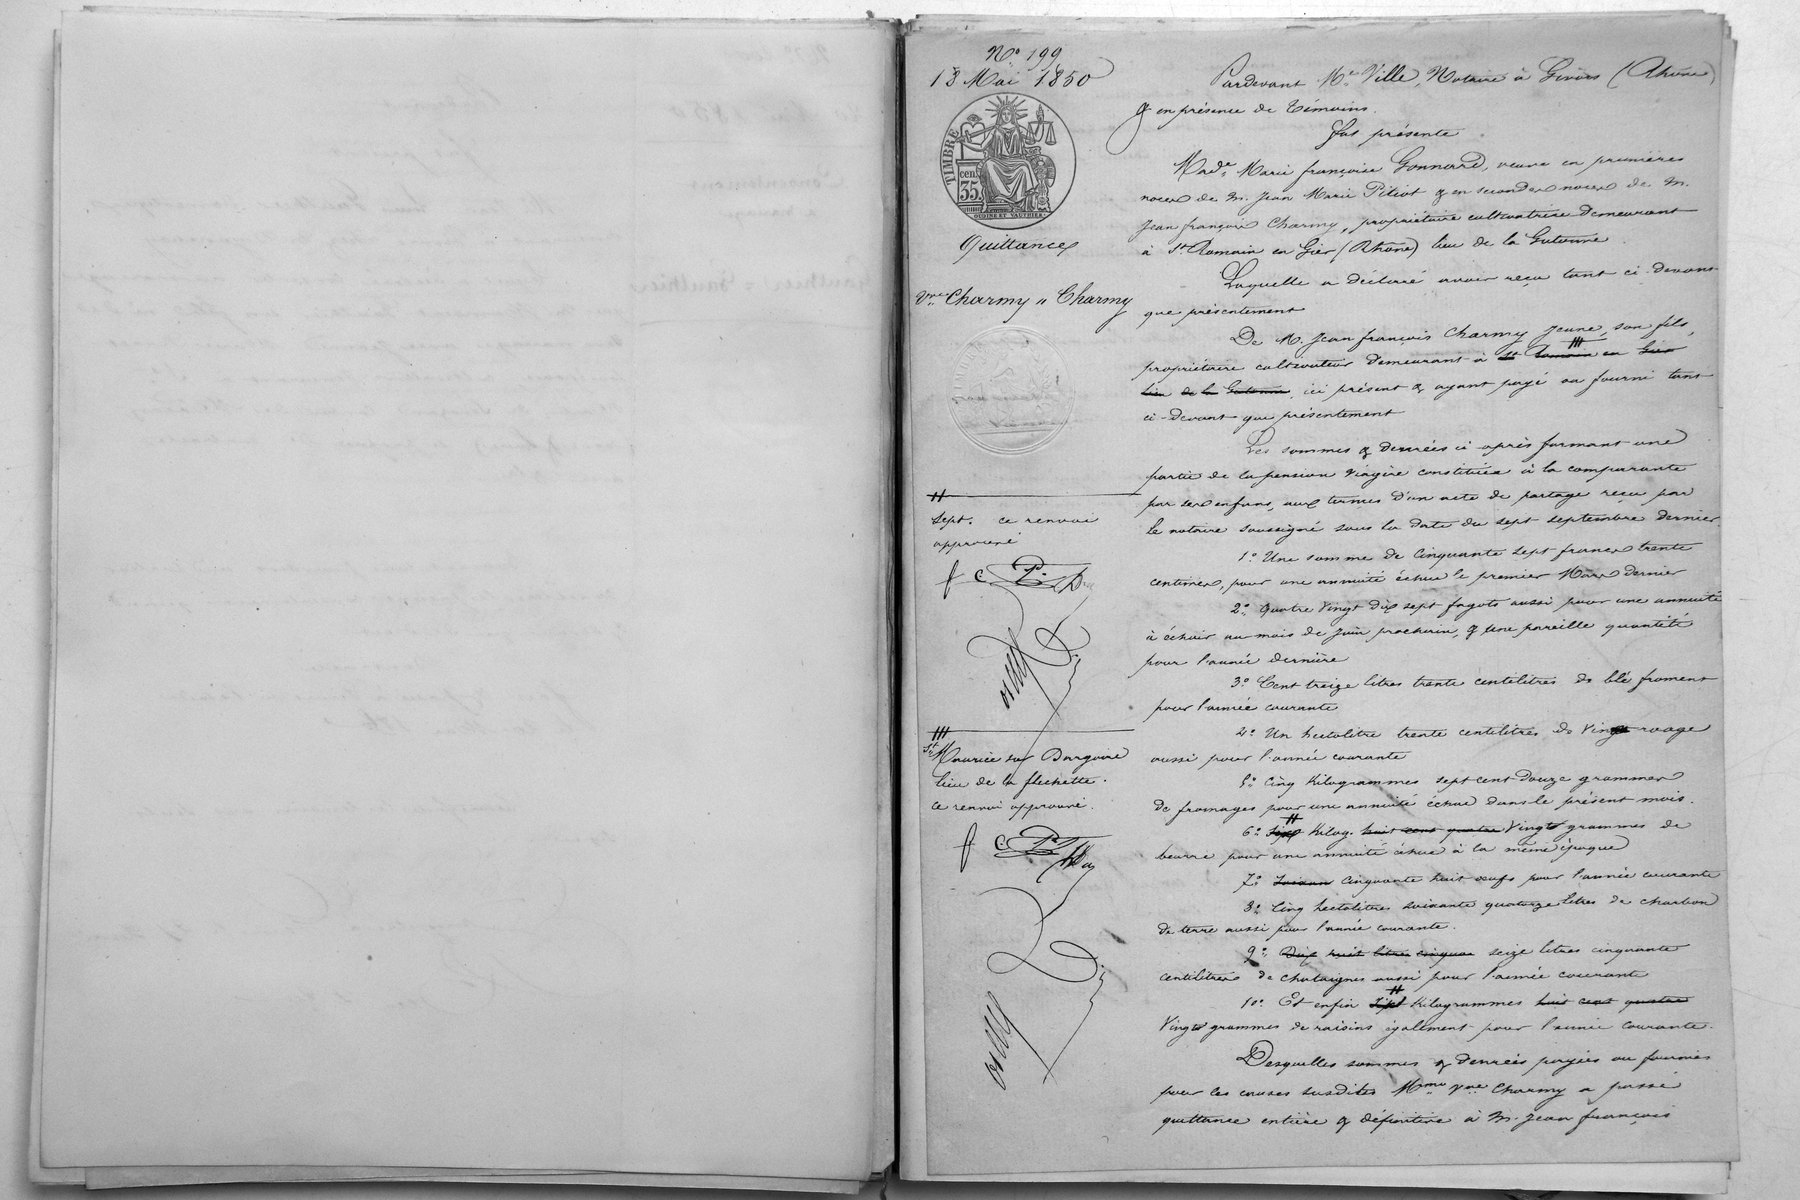 N° 199
13 Mai 1850
TIMBRE
cen. 35.
OUDINE ET VAUTHIER
Quittance
Vve Charmy à Charmy
H
sept. ce renvoi
approuvé
f C P.
ville
H|
St Maurice sur Dargoire
lieu de la flechette.
ce renvoi approuvé.
f C P
ville
Pardevant Me Ville, Notaire à Givors (Rhône)
& en présence de Témoins.
Fut présente
Made Marie françoise Gonnard, veuve en premières
noces de M. Jean Marie Pitiot & en secondes noces de M.
Jean françois Charmy, propriétaire cultivatrice demeurant
à St Romain en Gier (Rhône) lieu de la Gutonne.
Laquelle a déclaré avoir reçu tant ci-devant
que présentement
De M. Jean françois Charmy jeune, son fils,
propriétaire cultivateur demeurant à St Romain en Gier
lieu de la Gutonne, ici présent & ayant payé ou fourni tant
ci-devant que présentement
Les sommes & denrées ci-après formant une
partie de la pension viagère constituée à la comparante
par ses enfans, aux termes d'un acte de partage reçu par
le notaire soussigné sous la date du sept septembre dernier
1° Une somme de Cinquante sept francs trente
centimes, pour une annuité échue le premier Mars dernier
2° Quatre Vingt dix sept fagots aussi pour une annuité
à échoir au mois de Juin prochain, & une pareille quantité
pour l'année dernière
3° Cent treize litres trente centilitres de blé froment
pour l'année courante
4° Un hectolitre trente centilitres de Vin rouge
aussi pour l'année courante
5° Cinq Kilogrammes sept cent douze grammes
de fromages pour une annuité échue dans le présent mois.
6° Kilog. huit cent quatre Vingt grammes de
beurre pour une annuité échue à la même époque
7° cinquante huit œufs pour l'année courante
8° Cinq hectolitres soixante quatorze litres de charbon
de terre aussi pour l'année courante.
9° Dix huit litres cinquan seize litres cinquante
centilitres de chataignes aussi pour l'année courante
10° Et enfin Kilogrammes huit cent quatre
Vingt grammes de raisins également pour l'année courante.
Desquelles sommes & denrées payées ou fournies
pour les causes susdites Mme Vve Charmy a passé
quittance entière & définitive à M. Jean françois